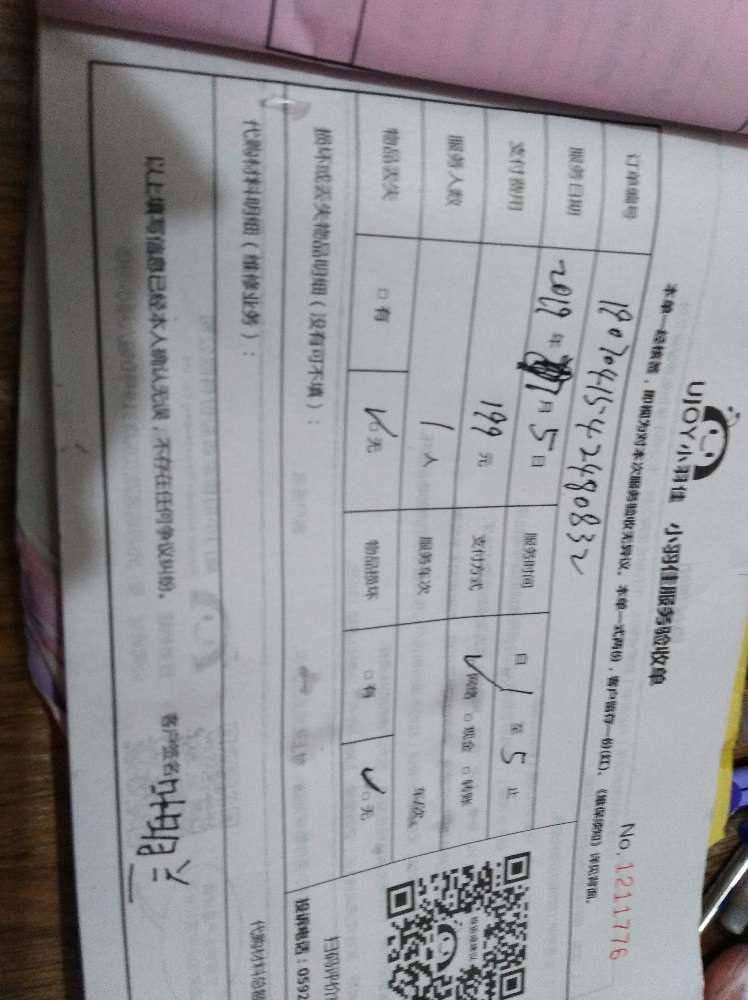 UJOY小羽佳 小羽佳服务验收单
No.1211776
本单一经核签,即视为对本次服务验收无异议。本单一式两份,客户留存一份(红)。《维保须知》详见背面。
订单编号 1907041542490832
服务日期 2019年7月5日 服务时间 自1至5止
支付费用 199元 支付方式 ✓网络 □现金 □转账
服务人数 1人 服务车次 车/次
物品丢失 □有 ✓□无 物品损坏 □有 ✓□无
损坏或丢失物品明细(没有可不填):
代购材料明细(维修业务):
代购材料总额
以上填写信息已经本人确认无误,不存在任何争议纠纷。 客户签名
扫码评价
投诉电话:0592